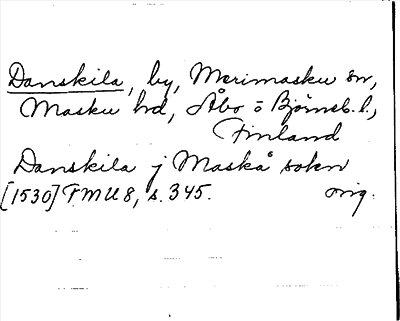 Danskila, by, Merimasku sn,
Masku hd, Åbo o Björneb. l.,
Finland
Danskila j Maskå sokn
[1530] FMU 8, s. 345. orig.